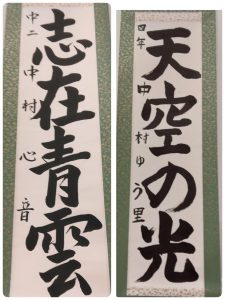 志在青雲
中二 中村心音
天空の光
四年 中村ゆう里